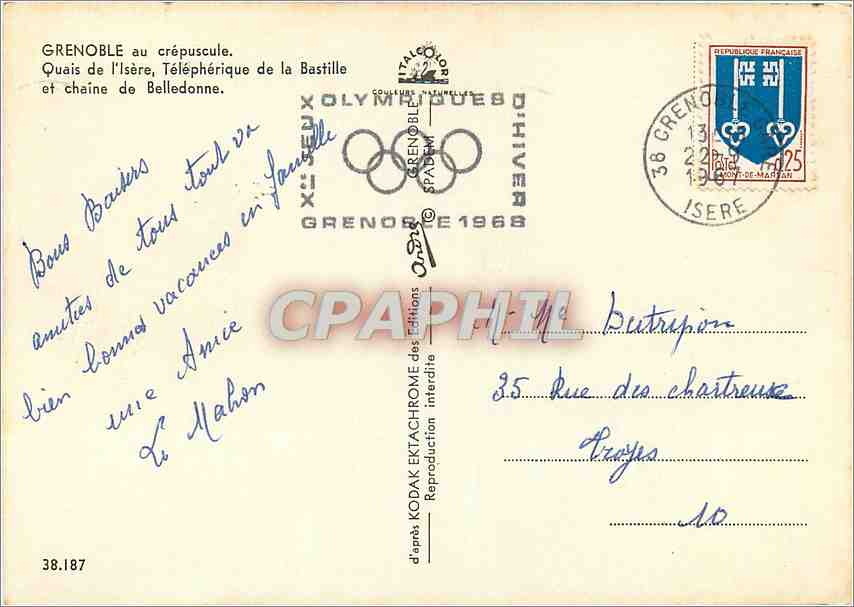 GRENOBLE au crépuscule.
Quais de l'Isère, Téléphérique de la Bastille
et chaîne de Belledonne.
ITALCOLOR
COULEURS NATURELLES
Xes JEUX
OLYMPIQUES
D'HIVER
GRENOBLE 1968
REPUBLIQUE FRANÇAISE
Postes
0,25
MONT-DE-MARSAN
38 GRENOBLE
13
22-
1967
ISERE
Bons Baisers
amities de tous tout va
bien bonnes vacances en famille
une Amie
Le Mahon
CPAPHIL
d'après KODAK EKTACHROME des Editions André © SPADEM GRENOBLE
Reproduction interdite
Mr Me Dutripon
35 Rue des chartreux
Troyes
10
38.187